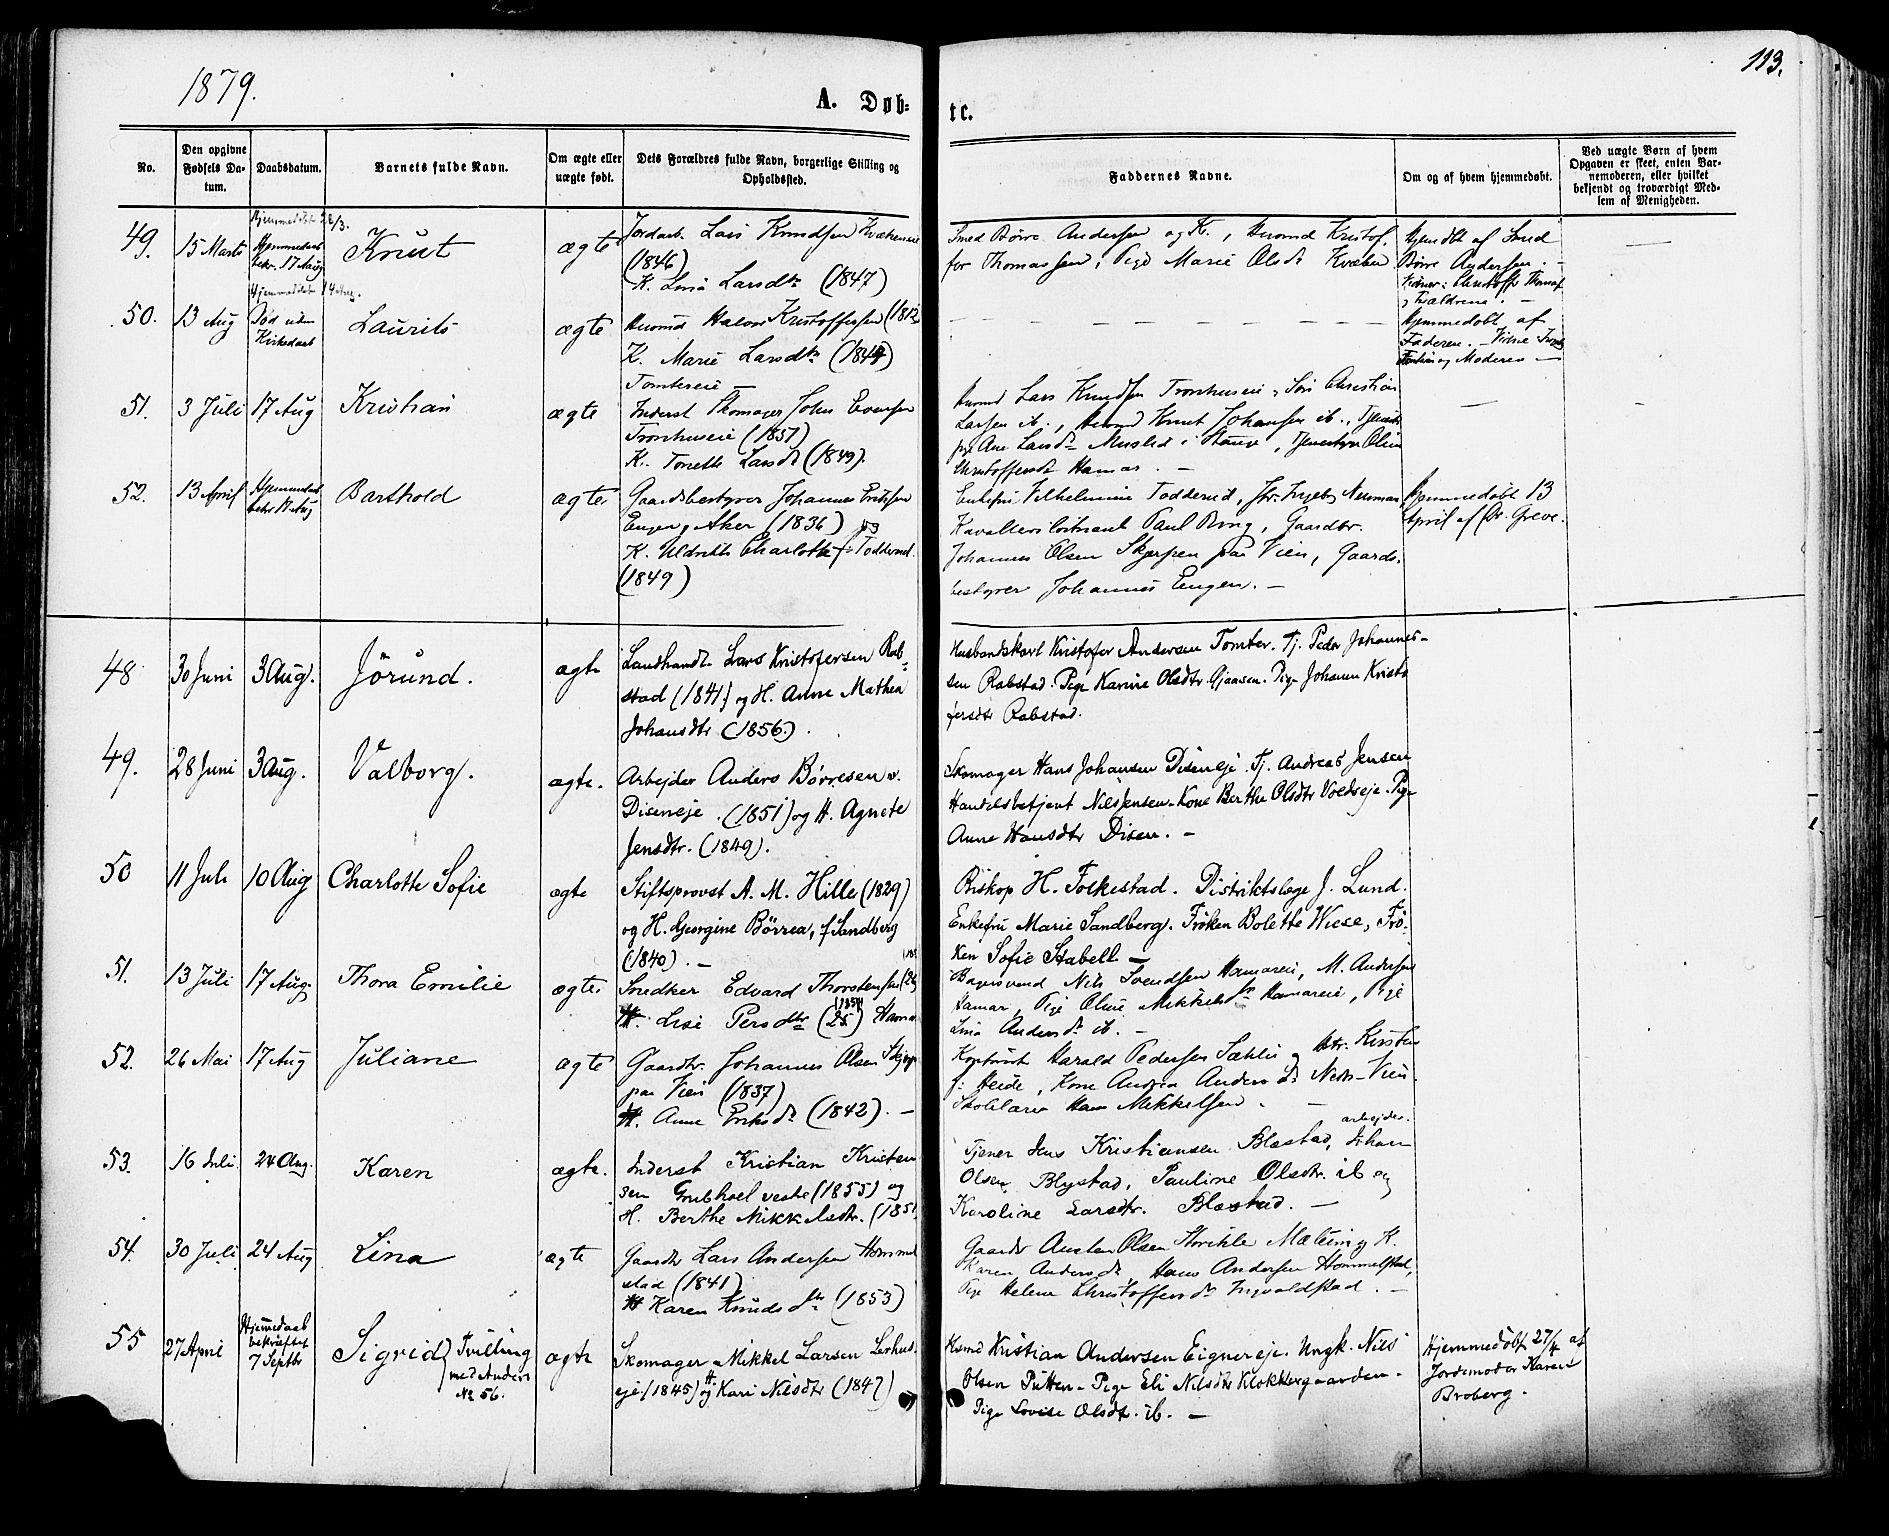 1879.
113.
A. Døb-
te.
No.
Den opgivne Fødsels Da-tum.
Daabsdatum.
Barnets fulde Navn.
Om ægte eller uægte født.
Dets Forældres fulde Navn, borgerlige Stilling og Opholdssted.
Faddernes Navne.
Om og af hvem hjemmedøbt.
Ved uægte Børn af hvem Opgaven er skeet, enten Bar-nemoderen, eller hvilket bekjendt og troværdigt Med-lem af Menigheden.
49. 15 Marts
Hjemmedaab
bekr. 17 Aug
Knut
ægte
Jordarb. Lars Knudsen
(1846)
K. Lina Larsdtr (1847)
Smed Börre Andersen og K., Husmd Kristof-
fer Thomassen, Pige Marie Olsdtr Kvæben
Hjemdbt af Smed
Börre Andersen. -
50. 13 Aug
Hjemmedöbt 14 Aug.
Död uden
Kirkedaab
Laurits
ægte
Husmd Halvor Kristoffersen (1812
K. Marie Larsdtr (1844)
Hjemmedöbt af
Faderen.
og Moderen
51. 3 Juli 17 Aug Kristian ægte
Inderst Skomager John Evensen
(1851)
K. Tonette Larsdtr (1849).
Husmd Lars Knudsen
Larsen ib., Husmd Knut Johansen ib.,
Christoffersdtr Hamar. -
52. 13 April
Barthold
ægte
Gaardsbestyrer Johannes Eriksen
Engen, Aker (1836) og
K. Uldrikke Charlotte f. Todderud.
(1849)
Enkefru Vilhelmine Todderud, Ingeb. Neuman,
Kavallerilöitnant Paul Ring, Gaardbr.
Johannes Olsen Skjerpen paa Vien, Gaards-
bestyrer Johannes Engen. -
Hjemmedöbt 13
April af Dr. Greve.
48 30 Juni 3 Aug. Jörund. ægte
Landhandl. Lars Kristofersen Rab-
stad (1841) og H. Anne Mathea
Johansdtr (1856).
Husbondskarl Kristofer Andersen Tomter. Tj. Peder Johannes-
sen Rabstad. Pige Karine Olsdtr. Gjaasen. Pige Johanne Kristo
fersdtr Rabstad.
49. 28 Juni 3 Aug. Valborg. ægte.
Arbejder Anders Börresen v.
Diseneje. (1851) og H. Agnete
Jensdtr. (1849).
Skomager Hans Johansen Diseneje. Tj. Andreas Jensen
Handelsbetjent Nils Jensen. Kone Berthe Olsdtr Voldseje. Pige
Anne Hansdtr Disen. -
50 11 Juli 10 Aug Charlotte Sofie ægte
Stiftsprovst A. M. Hille (1829)
og H. Georgine Börrea, f. Sandberg
(1840). -
Biskop H. Folkestad. Distriktslæge J. Lund.
Enkefru Marie Sandberg. Fröken Bolette Wiese, Frö-
ken Sofie Stabell -
51. 13 Juli 17 Aug. Thora Emilie ægte
Snedker Edvard Thorstensen
H. Lise Persdtr (25) Hamar
Bagersvend Nils Svendsen Hamareie, M. Andersen
Hamar, Pige Oline Mikkelsdtr Hamareie, Pige
Lina Andersdtr ib. -
52. 26 Mai 17 Aug Juliane ægte
Gaardbr. Johannes Olsen
paa Vien (1837)
H. Anne Eriksdtr (1842). -
Harald Pedersen Sæhlie og
f. Heide, Kone Andrea Andersdtr Nedr. Vien.
Skolelærer Hans Mikkelsen. -
53. 16 Juli. 24 Aug. Karen ægte.
Inderst Kristian Kristen
sen Grubhoel vestre (1855) og
H. Berthe Mikkelsdtr. (1851)
arbejder.
Tjener Jens Kristiansen Blæstad, Johan
Olsen Blystad, Pauline Olsdtr. ib og
Karoline Larsdtr. Blæstad. -
54. 30 Juli 24 Aug Lina ægte
Gaardbr Lars Andersen Hommel
stad (1841)
H Karen Knudsdtr (1853)
Gaardbr Austen Olsen Storihle Mælum og K.
Karen Andersdtr Hans Andersen Hommelstad,
Pige Helene Christoffersdtr Ingvaldstad. -
55 27 April
Hjemmedaab
bekræftet
7 Septbr
Sigrid
Tvilling
med Anders
No 56.
ægte
Skomager Mikkel Larsen Lerhus-
eje (1845) og H Kari Nilsdtr (1847)
Husmd Kristian Andersen Eignereje. Ungk. Nils
Olsen Putten - Pige Eli Nilsdtr Klokkergaarden -
Pige Lovise Olsdt. ib. -
Hjemmedöbt 27/4 af
Jordemoder Karen
Broberg.